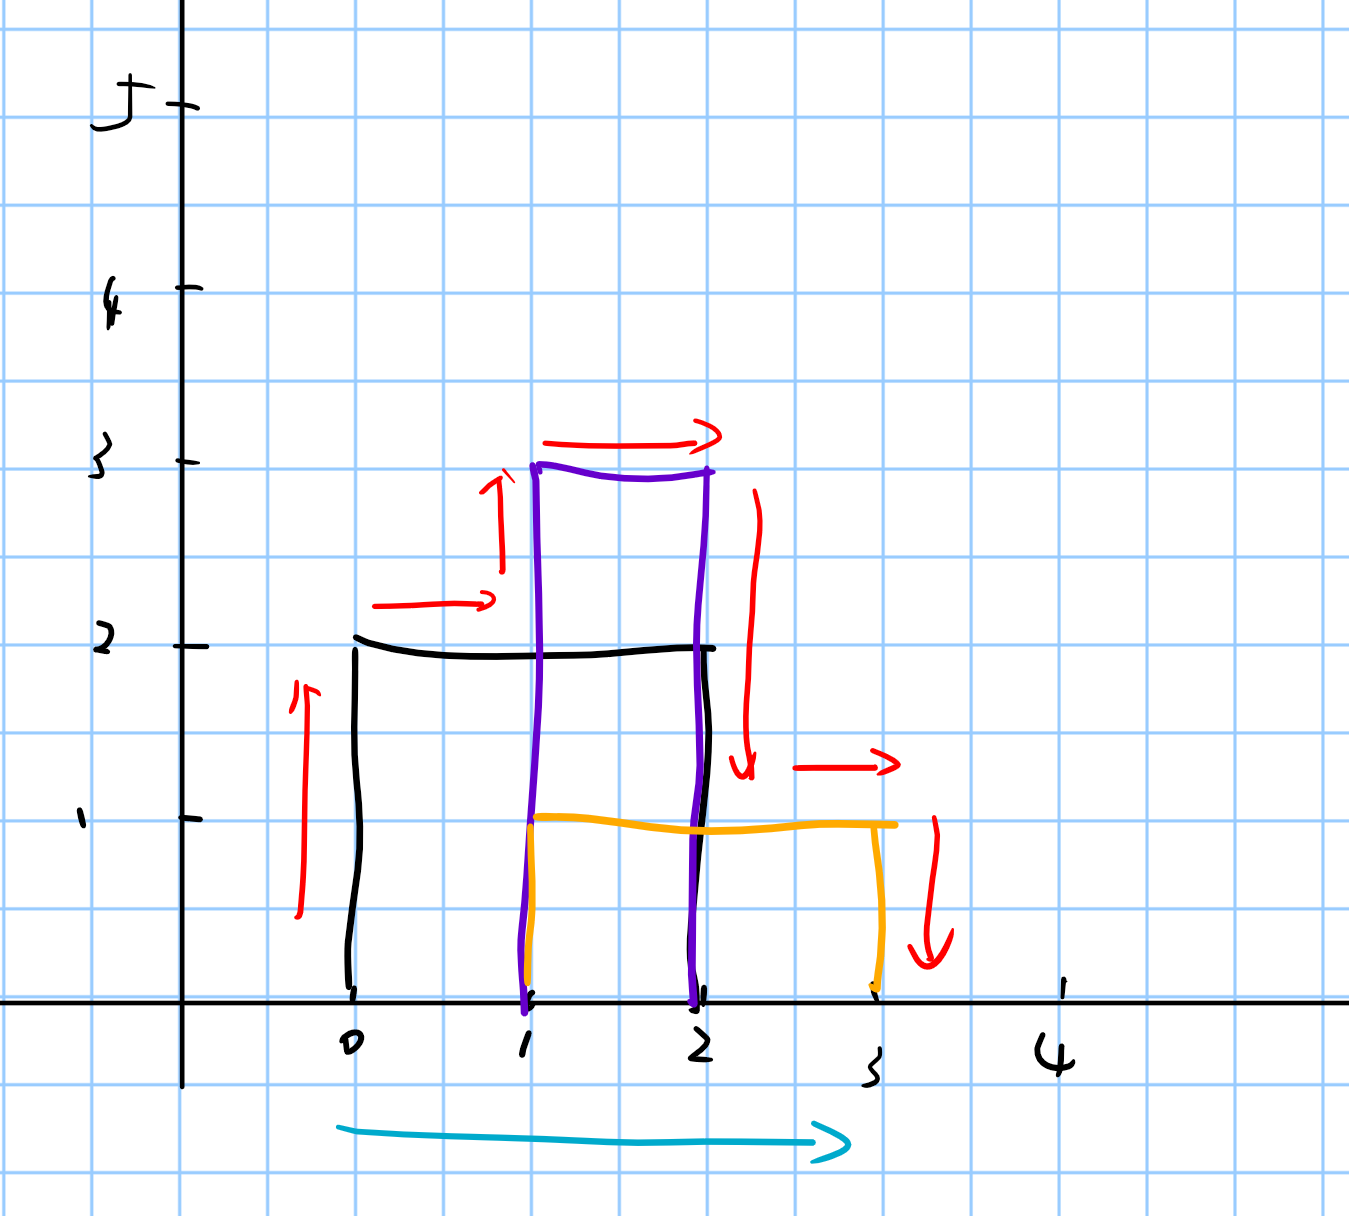 5
4
3
2
1
0 1 2 3 4